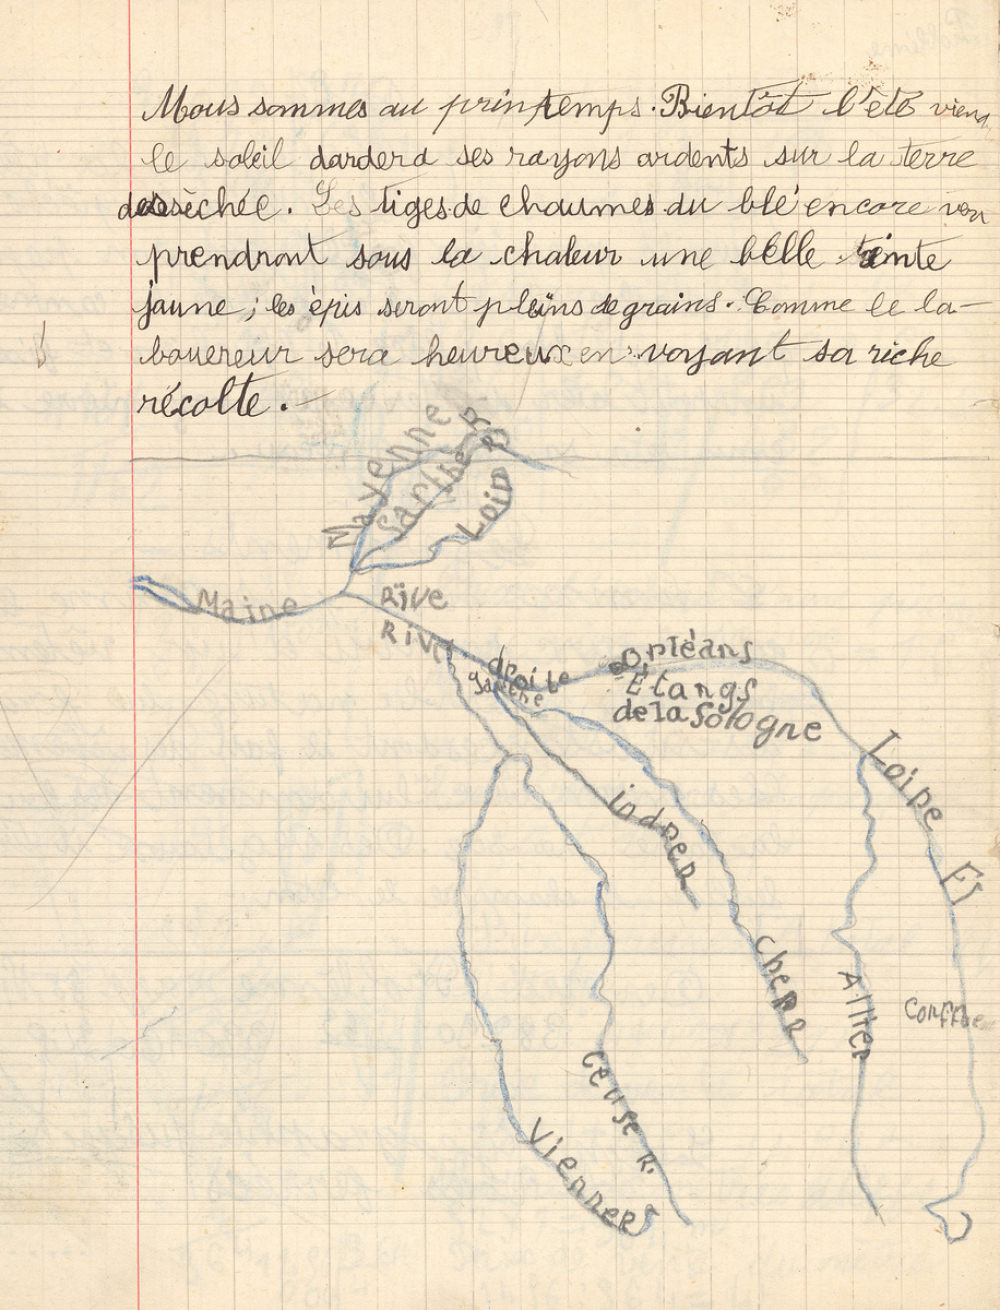 Nous sommes au printemps. Bientôt l'été viend
le soleil dardera ses rayons ardents sur la terre
desséchée. Les tiges de chaumes du blé encore ver
prendront sous la chaleur une belle teinte
jaune ; les épis seront pleins de grains. Comme le la-
bouereur sera heureux en voyant sa riche
récolte.
Mayenne R
Sarthe R
Loir
Maine
Rive
Rive
droite
gauche
Orléans
Étangs
de la Sologne
Loire Fl
indreR
CherR
Allier
Ceuse R.
VienneR